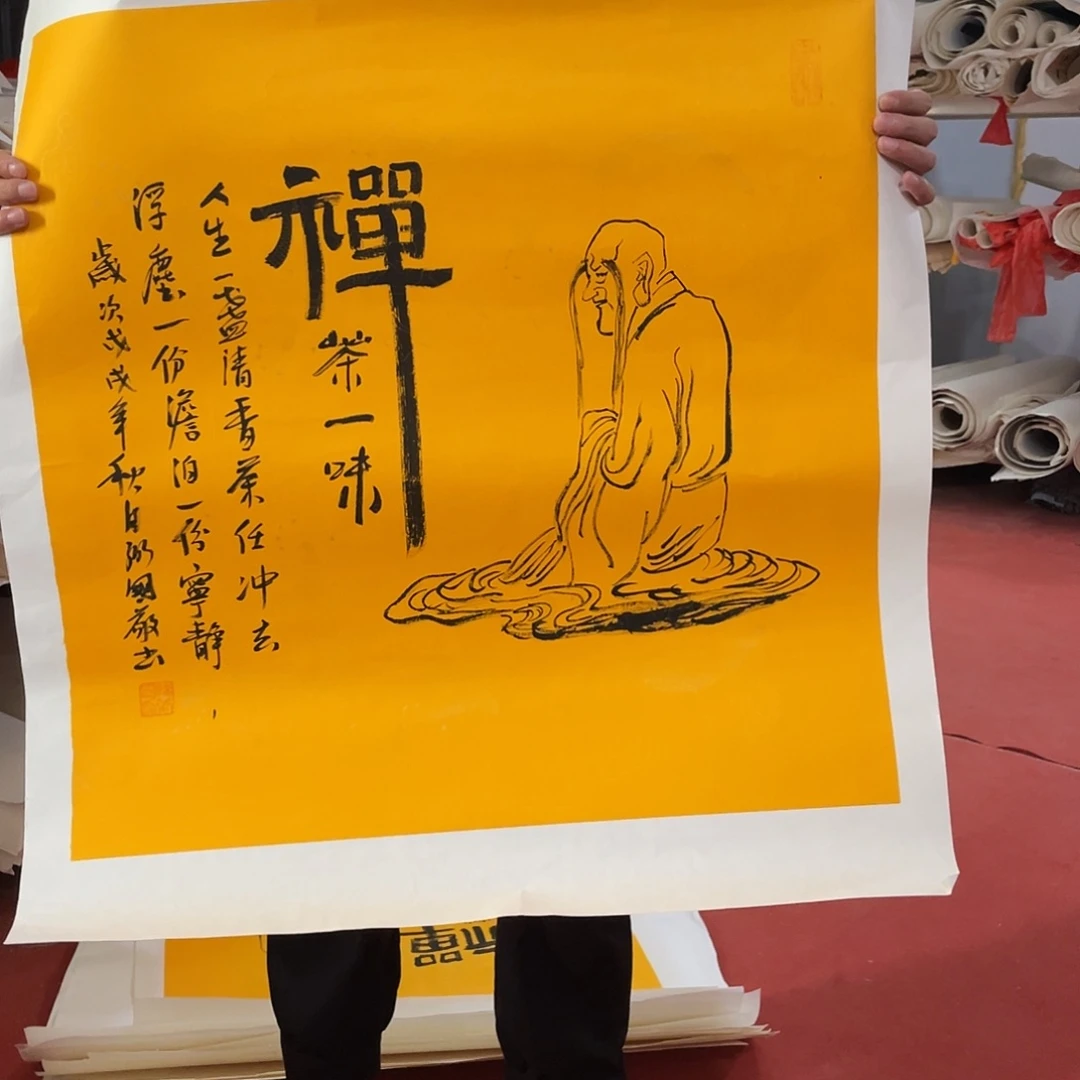 禪
茶一味
人生一盞清香茶任冲去
浮塵一份澹泊一份寧靜
歲次戊戌年秋月 國嚴书